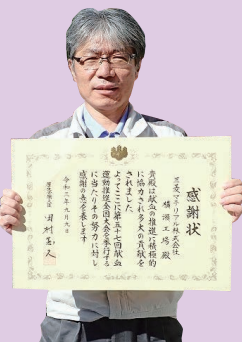 感謝状
三菱マテリアル株式会社
横瀬工場 殿
貴殿は献血の推進に積極的
に協力され多大の貢献を
されました
よってここに第五十七回献血
運動推進全国大会を挙行する
に当たりその努力に対し
感謝の意を表します
令和三年九月九日
厚生労働大臣
田村憲久